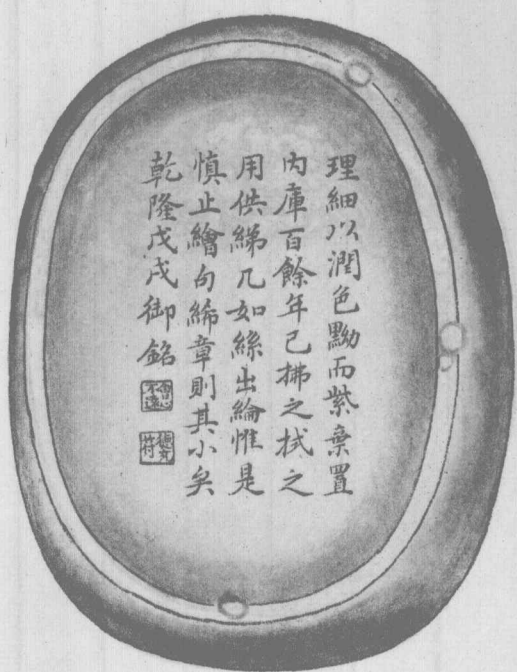 理細以潤色黝而紫棄置
內庫百餘年已拂之拭之
用供綈几如絲出綸惟是
慎止繪句絺章則其小矣
乾隆戊戌御銘
會心不遠
德充符